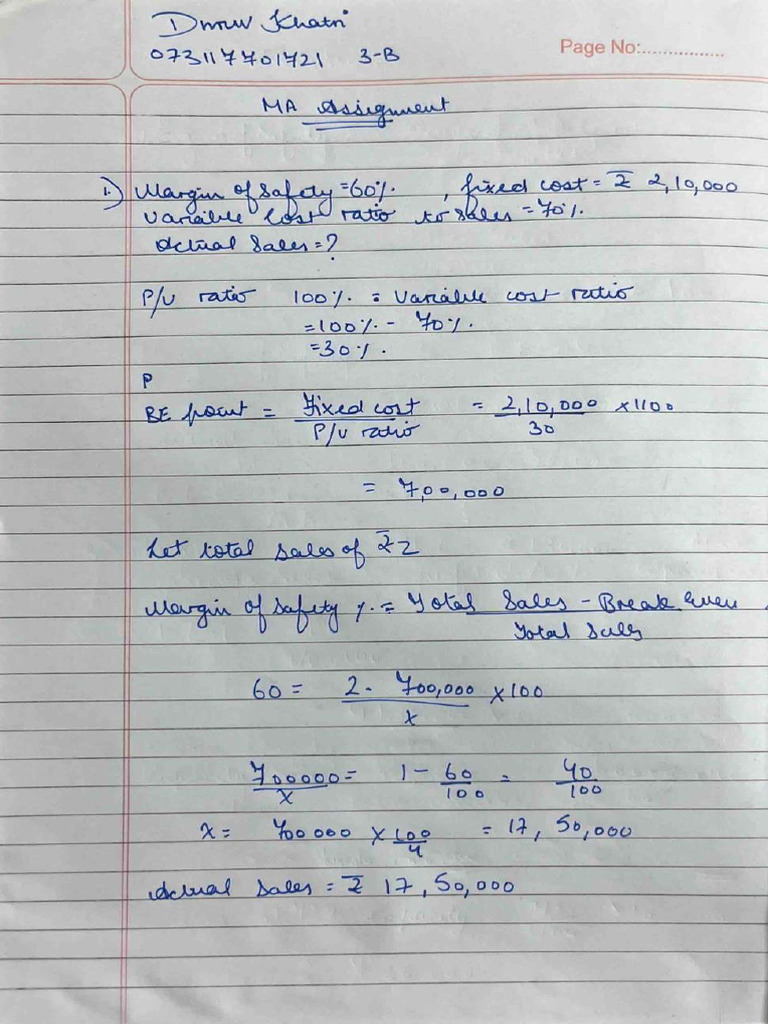 Dhruv Khatri
Page No:................
073117701721 3-B
MA Assignment
1.) Margin of safety =60%. , fixed cost = ₹ 2,10,000
Variable cost ratio to sales = 70%.
Actual Sales = ?
P/V ratio 100%. = Variable cost ratio
=100%.- 70%.
=30%.
P
BE point = Fixed cost / P/V ratio = 2,10,000 / 30 ×1100
= 7,00,000
Let total sales of ₹ 2
Margin of safety %. = Total Sales - Break even / Total Sales
60 = 2 - 700,000 / x ×100
700000 / x = 1 - 60 / 100 = 40 / 100
x = 700000 × 100 / 4 = 17, 50,000
Actual Sales = ₹ 17,50,000